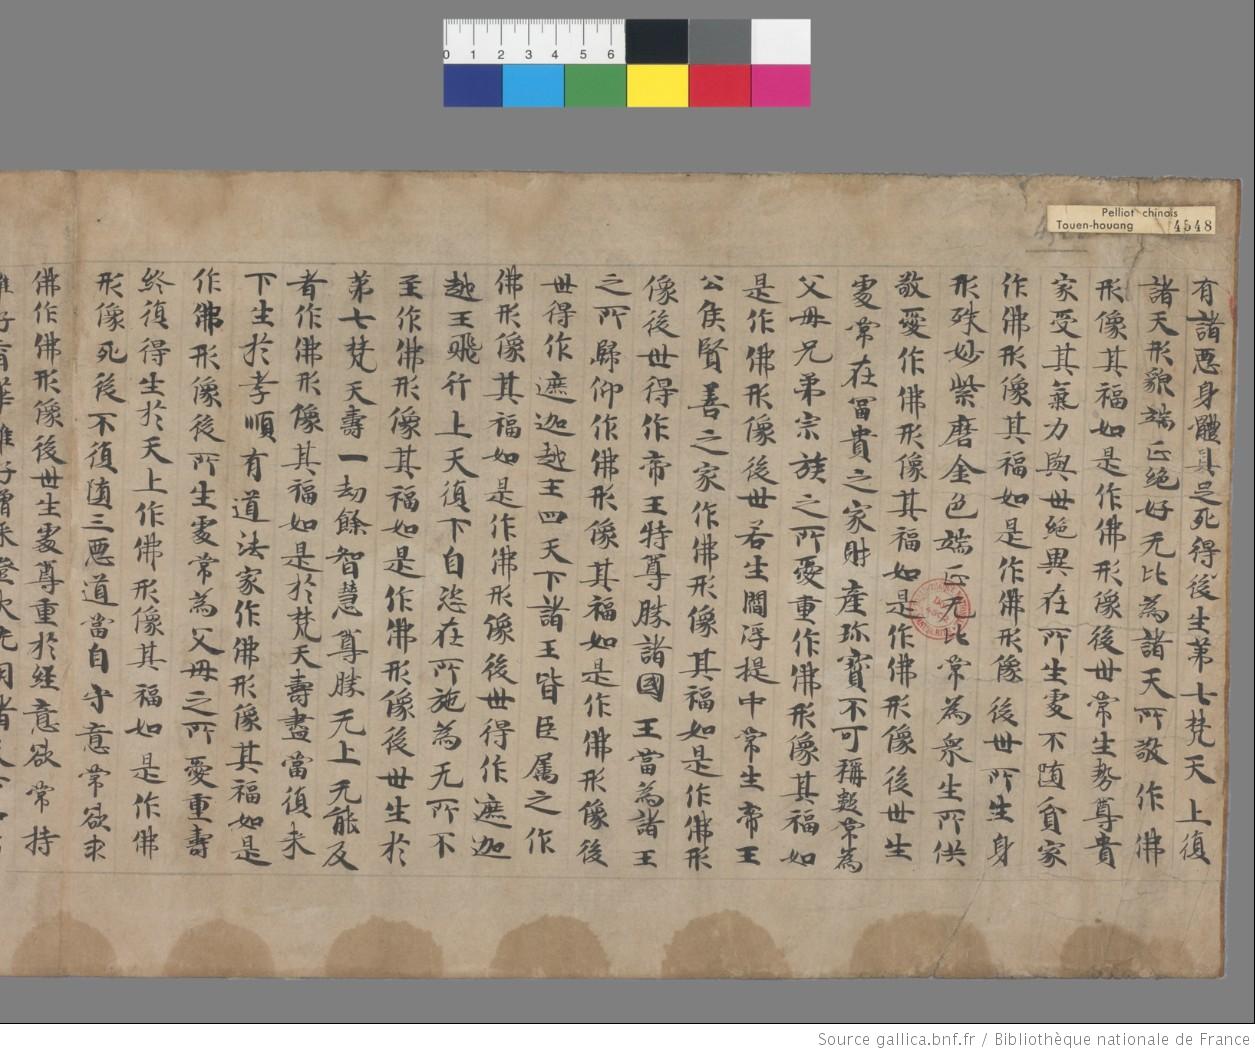 0 1 2 3 4 5 6
Pelliot chinois
Touen-houang 4548
有諸惡身體具足死得後生第七梵天上復
諸天形貌端正絕好无比為諸天所敬作佛
形像其福如是作佛形像後世常生勢尊貴
家受其氣力與世絕異在所生處不随貧家
作佛形像其福如是作佛形像後世所生身
形殊妙紫磨金色端正无比常為衆生所供
敬愛作佛形像其福如是作佛形像後世生
處常在冨貴之家財產珎寳不可稱數常為
父母兄弟宗族之所愛重作佛形像其福如
是作佛形像後世若生閻浮提中常生帝王
公侯賢善之家作佛形像其福如是作佛形
像後世得作帝王特尊勝諸國王當為諸王
之所歸仰作佛形像其福如是作佛形像後
世得作遮迦越王四天下諸王皆臣属之作
佛形像其福如是作佛形像後世得作遮迦
越王飛行上天復下自恣在所施為无所不
至作佛形像其福如是作佛形像後世生於
第七梵天壽一劫餘智慧尊勝无上无能及
者作佛形像其福如是於梵天壽盡當復来
下生於孝順有道法家作佛形像其福如是
作佛形像後所生處常為父母之所愛重壽
終復得生於天上作佛形像其福如是作佛
形像死後不復随三惡道當自守意常欲求
佛作佛形像後世生處尊重於経意欲常持
Source gallica.bnf.fr / Bibliothèque nationale de France